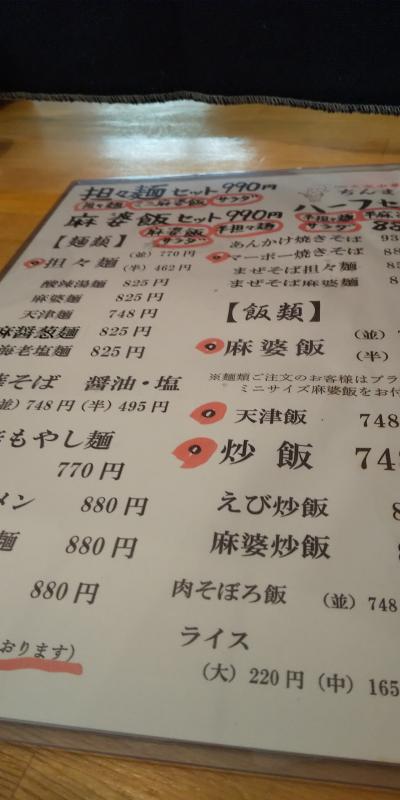 担々麺セット990円
担々麺 ミニ麻婆飯 サラダ
麻婆飯セット990円
麻婆飯 半担々麺
サラダ
ハーフセ
半担々麺
サラダ
【麺類】
担々麺 (並) 770円
(半) 462円
酸辣湯麺 825円
麻婆麺 825円
天津麺 748円
麻醤葱麺 825円
海老塩麺 825円
そば 醤油・塩
並) 748円 (半) 495円
もやし麺
770円
メン 880円
麺 880円
880円
おります)
あんかけ焼きそば 93
マーボー焼きそば 88
まぜそば担々麺
まぜそば麻婆麺
【飯類】
麻婆飯 (並)
(半)
※麺類ご注文のお客様はプラ
ミニサイズ麻婆飯をお付
天津飯 748
炒飯 74
えび炒飯
麻婆炒飯
肉そぼろ飯 (並) 748
ライス
(大) 220円 (中) 165